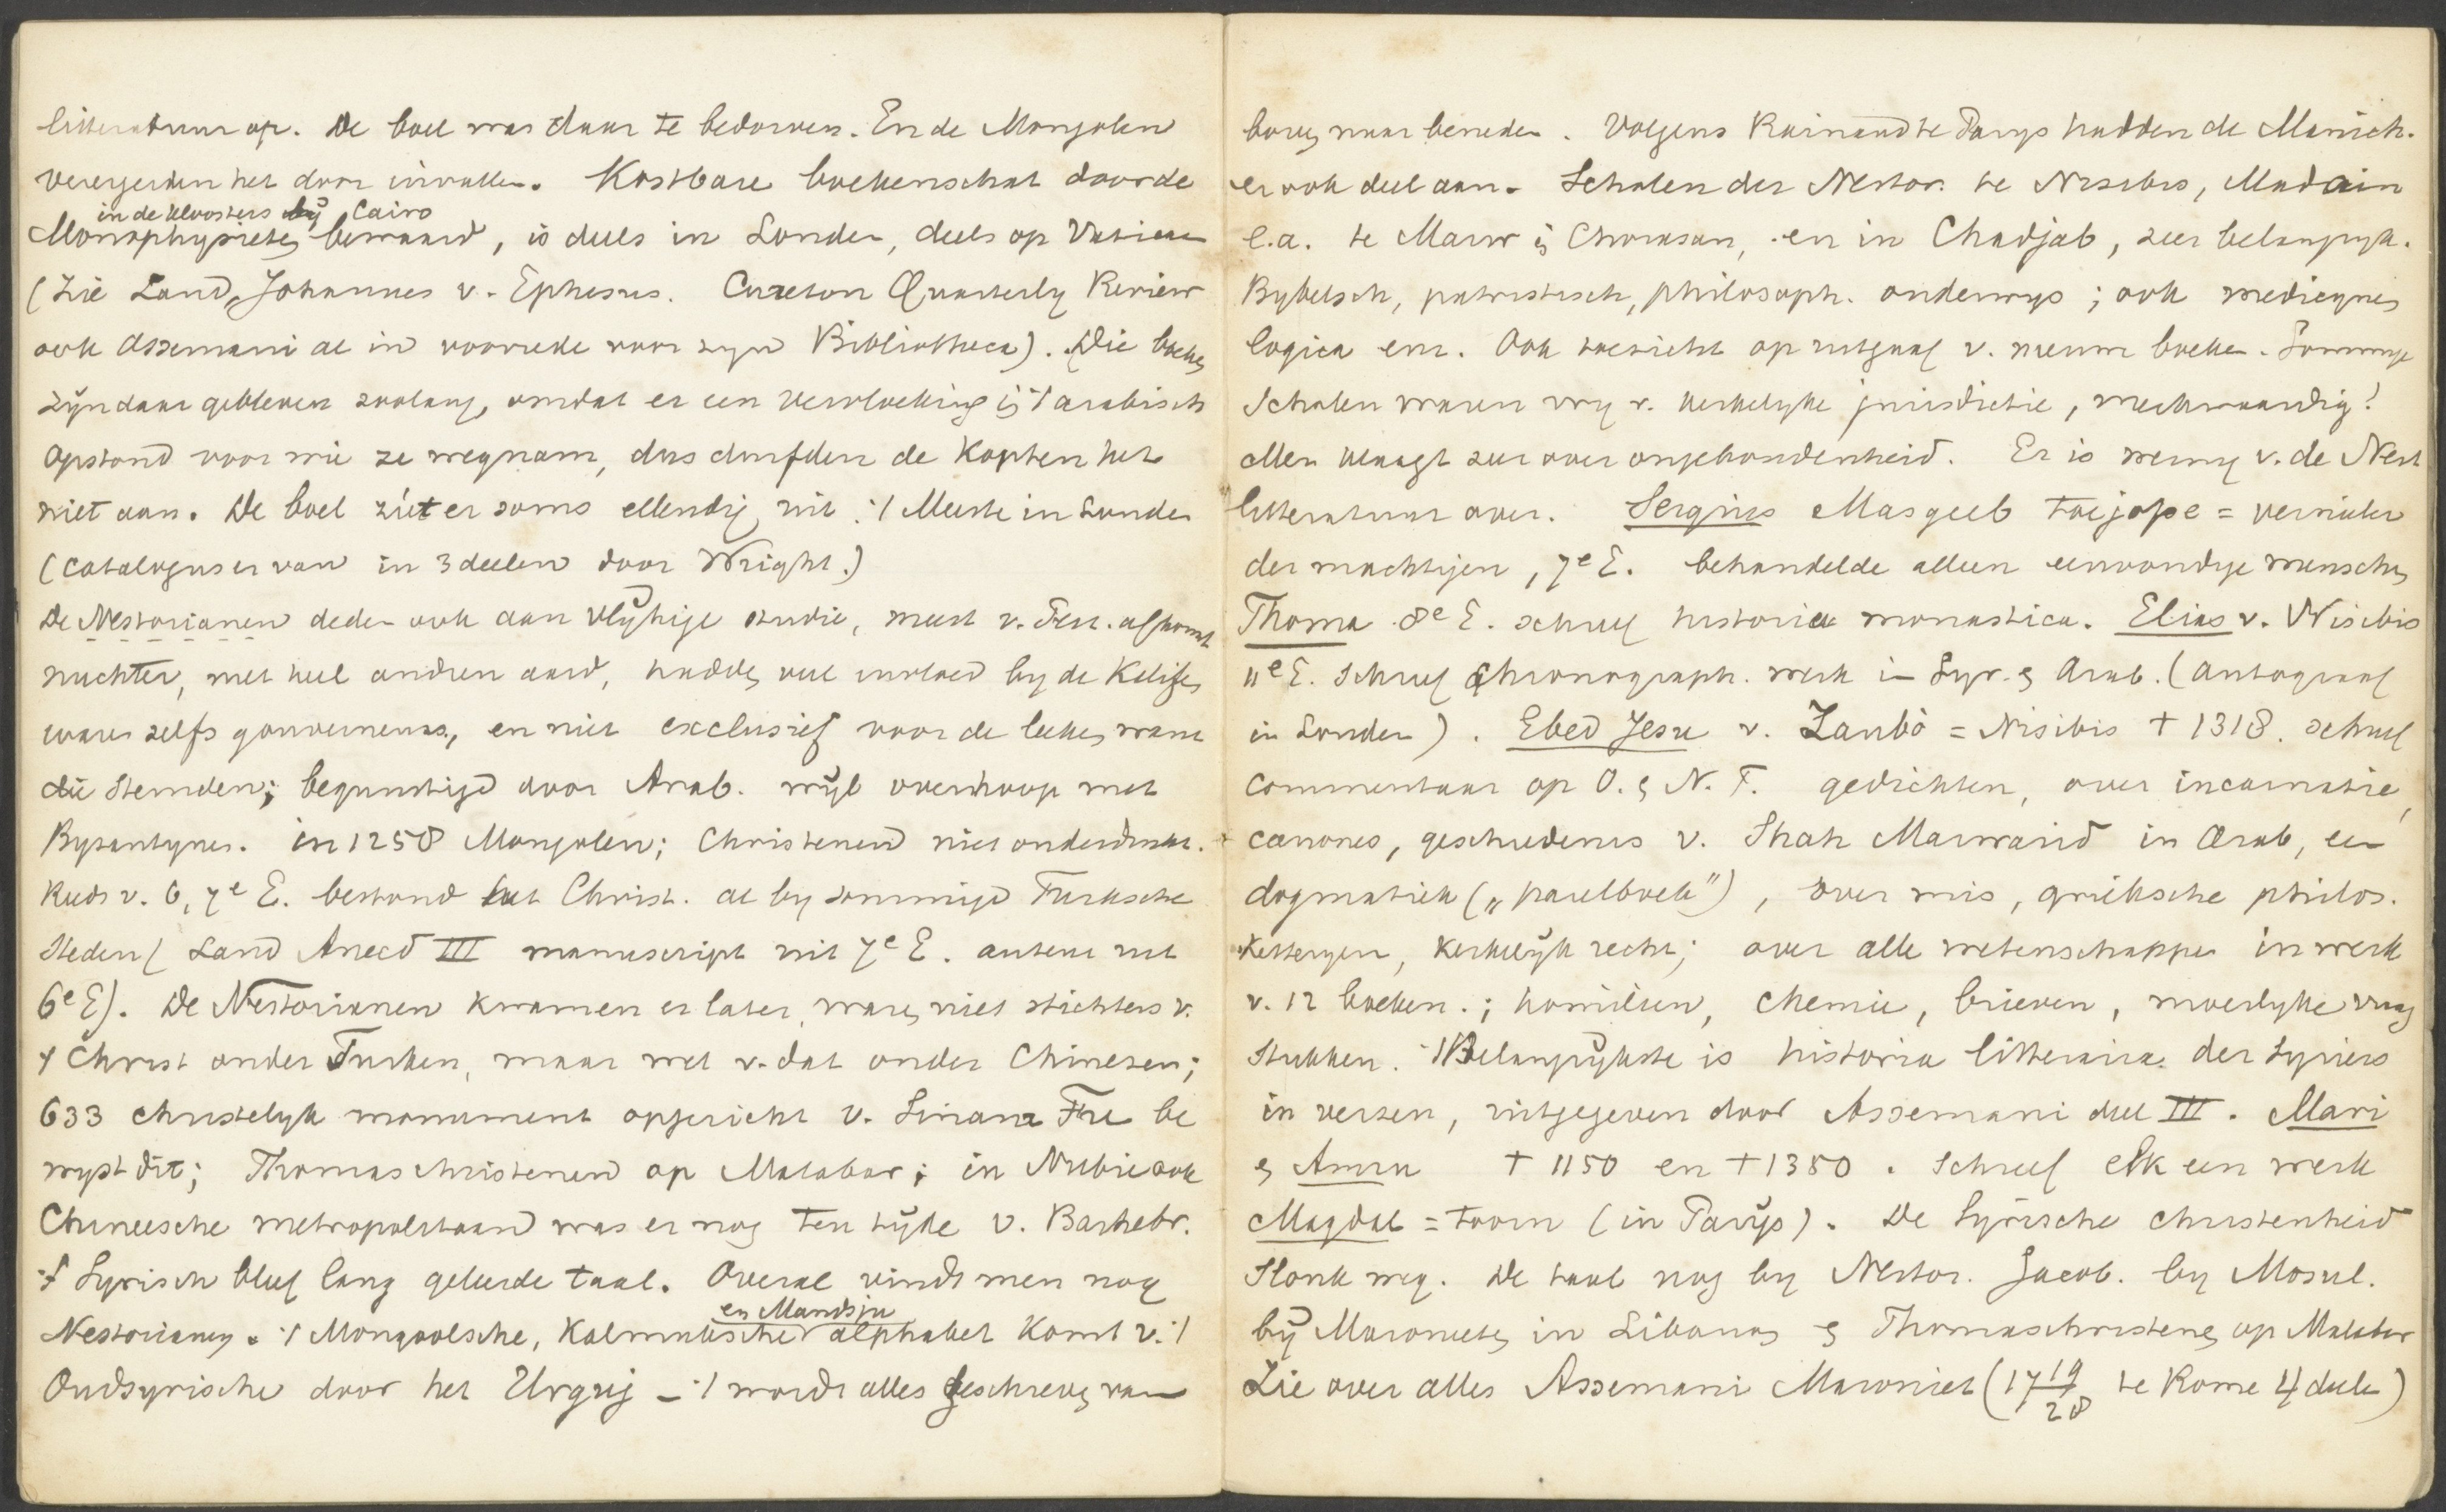 litteratuur op. De boel was daar te bedorven. En de Mongolen
verergerden het door invallen. Kostbare boekenschat door de
in de kloosters by Cairo
Monophysieten bewaard, is deels in Londen, deels op Vaticaan
(Zie Land, Johannes v. Ephesus. Cureton Quarterly Review
ook Assemani al in voorrede voor zyn Bibliotheca). Die boeken
zyn daar gebleven zoolang, omdat er een vervloeking is arabisch
opstond voor wie ze wegnam, dus durfden de Kopten het
niet aan. De boel ziet er soms ellendig uit. Meeste in Londen
(catalogus er van in 3 deelen door Wright.)
De Nestorianen deden ook aan vlytige studie, meest v. Perz. afkomst
nuchter, met heel andren aard, hadden veel invloed by de Kalifen
waren zelfs gouverneurs, en niet exclusief voor de leeken want
die stemden; begunstigd door Arab. wyl overhoop met
Byzantynen. in 1258 Mongolen; Christenen niet onderdrukt.
Reeds v. 6, 7e E. bestond het Christ. al by sommige Turksche
Steden (Land Anecd III manuscript uit 7e E. auteur uit
6e E). De Nestorianen kwamen er later, waren niet stichters v.
't Christ onder Turken, maar wel v. dat onder Chinezen;
633 christelyk monument opgericht v. Sinan Fu be
wyst dit; Thomaschristenen op Malabar; in Nubie ook
Chineesche metropolitaan was er nog ten tyde v. Barhebr.
't Syrisch bleef lang geleerde taal. Overal vindt men nog
en Mandsju
Nestorianen. 't Mongoolsche, Kalmuksche alphabet komt v. 't
Oudsyrische door het Uigurj – 't wordt alles geschreven van
boven naar beneden. Volgens Reinaud te Parys hadden de Manich.
er ook deel aan. Scholen der Nestor. te Nisibis, Madain
e.a. te Marw in Chorasan, en in Chadjab, zeer belangryk.
Bybelsch, patristisch, philosoph. onderwys; ook medicynen
logica enz. Ook toezicht op uitgaaf v. nieuwe boeken. Sommige
Scholen waren vry v. kerkelyke jurisdictie, merkwaardig!
Men klaagt zeer over ongebondenheid. Er is weinig v. de Nest
litteratuur over. Sergius Masgeeb = vernieler
der machtigen, 7e E. behandelde alleen eenvoudige menschen
Thoma 8e E. schreef historia monastica. Elias v. Nisibis
11e E. Schreef Chronograph. werk in Syr. & Arab. (autograaf
in Londen). Ebed Jesu v. Zaubò = Nisibis † 1318. schreef
Commentaar op O. & N. T. gedichten, over incarnatie,
canones, geschiedenis v. Shah Marwarid in Arab, een
dogmatiek („paarlboek"), over mis, grieksche philos.
Ketteryen, Kerkelyk recht; over alle wetenschappen in werk
v. 12 boeken.; homiliën, chemie, brieven, moeilyke vraag
Stukken. 't Belangrykste is historia litteraria der Syriers
in verzen, uitgegeven door Assemani deel III. Mari
& Amru † 1150 en † 1350. Schreef elk een werk
Magdal = toorn (in Parys). De Syrische christenheid
Slonk weg. De taal nog by Nestor. Jacob. by Mosul.
by Maronieten in Libanon & Thomaschristenen op Malabar
Zie over alles Assemani Maroniet (17 19/28 te Rome 4 deelen)